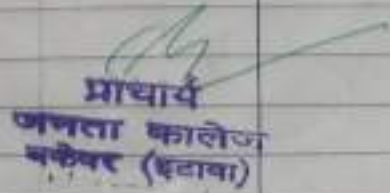 प्राचार्य
जनता कालेज
बकेवर (इटावा)